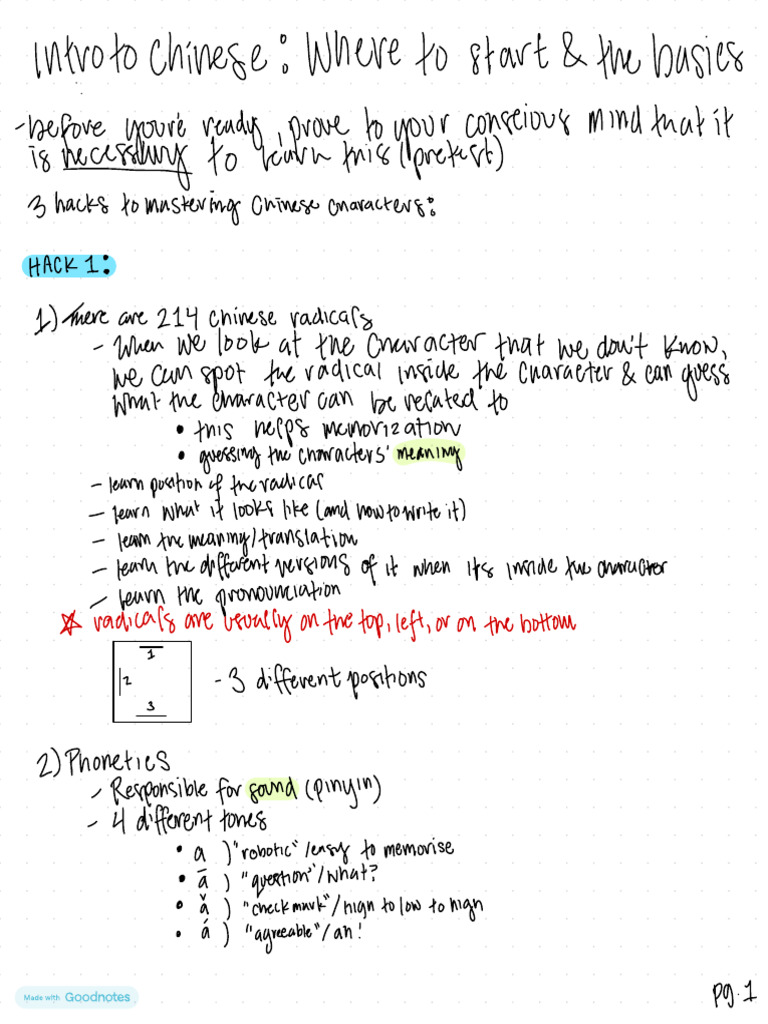 Intro to Chinese: Where to start & the basics
-before you're ready, prove to your conscious mind that it
is necessary to learn this (pretest)
3 hacks to mastering Chinese Characters:
HACK 1:
1) There are 214 Chinese radicals
- When we look at the Character that we don't know,
we can spot the radical inside the character & can guess
what the character can be related to
• this helps memorization
• guessing the characters' meaning
- learn position of the radical
- learn what it looks like (and how to write it)
- learn the meaning/translation
- learn the different versions of it when its inside the character
- learn the pronounciation
☆ radicals are usually on the top, left, or on the bottom
1
2
3
- 3 different positions
2) Phonetics
- Responsible for sound (pinyin)
- 4 different tones
• a ) "robotic"/easy to memorise
• ā ) "question"/what?
• ǎ ) "check mark"/high to low to high
• á ) "agreeable"/ah!
Made with Goodnotes
pg. 1